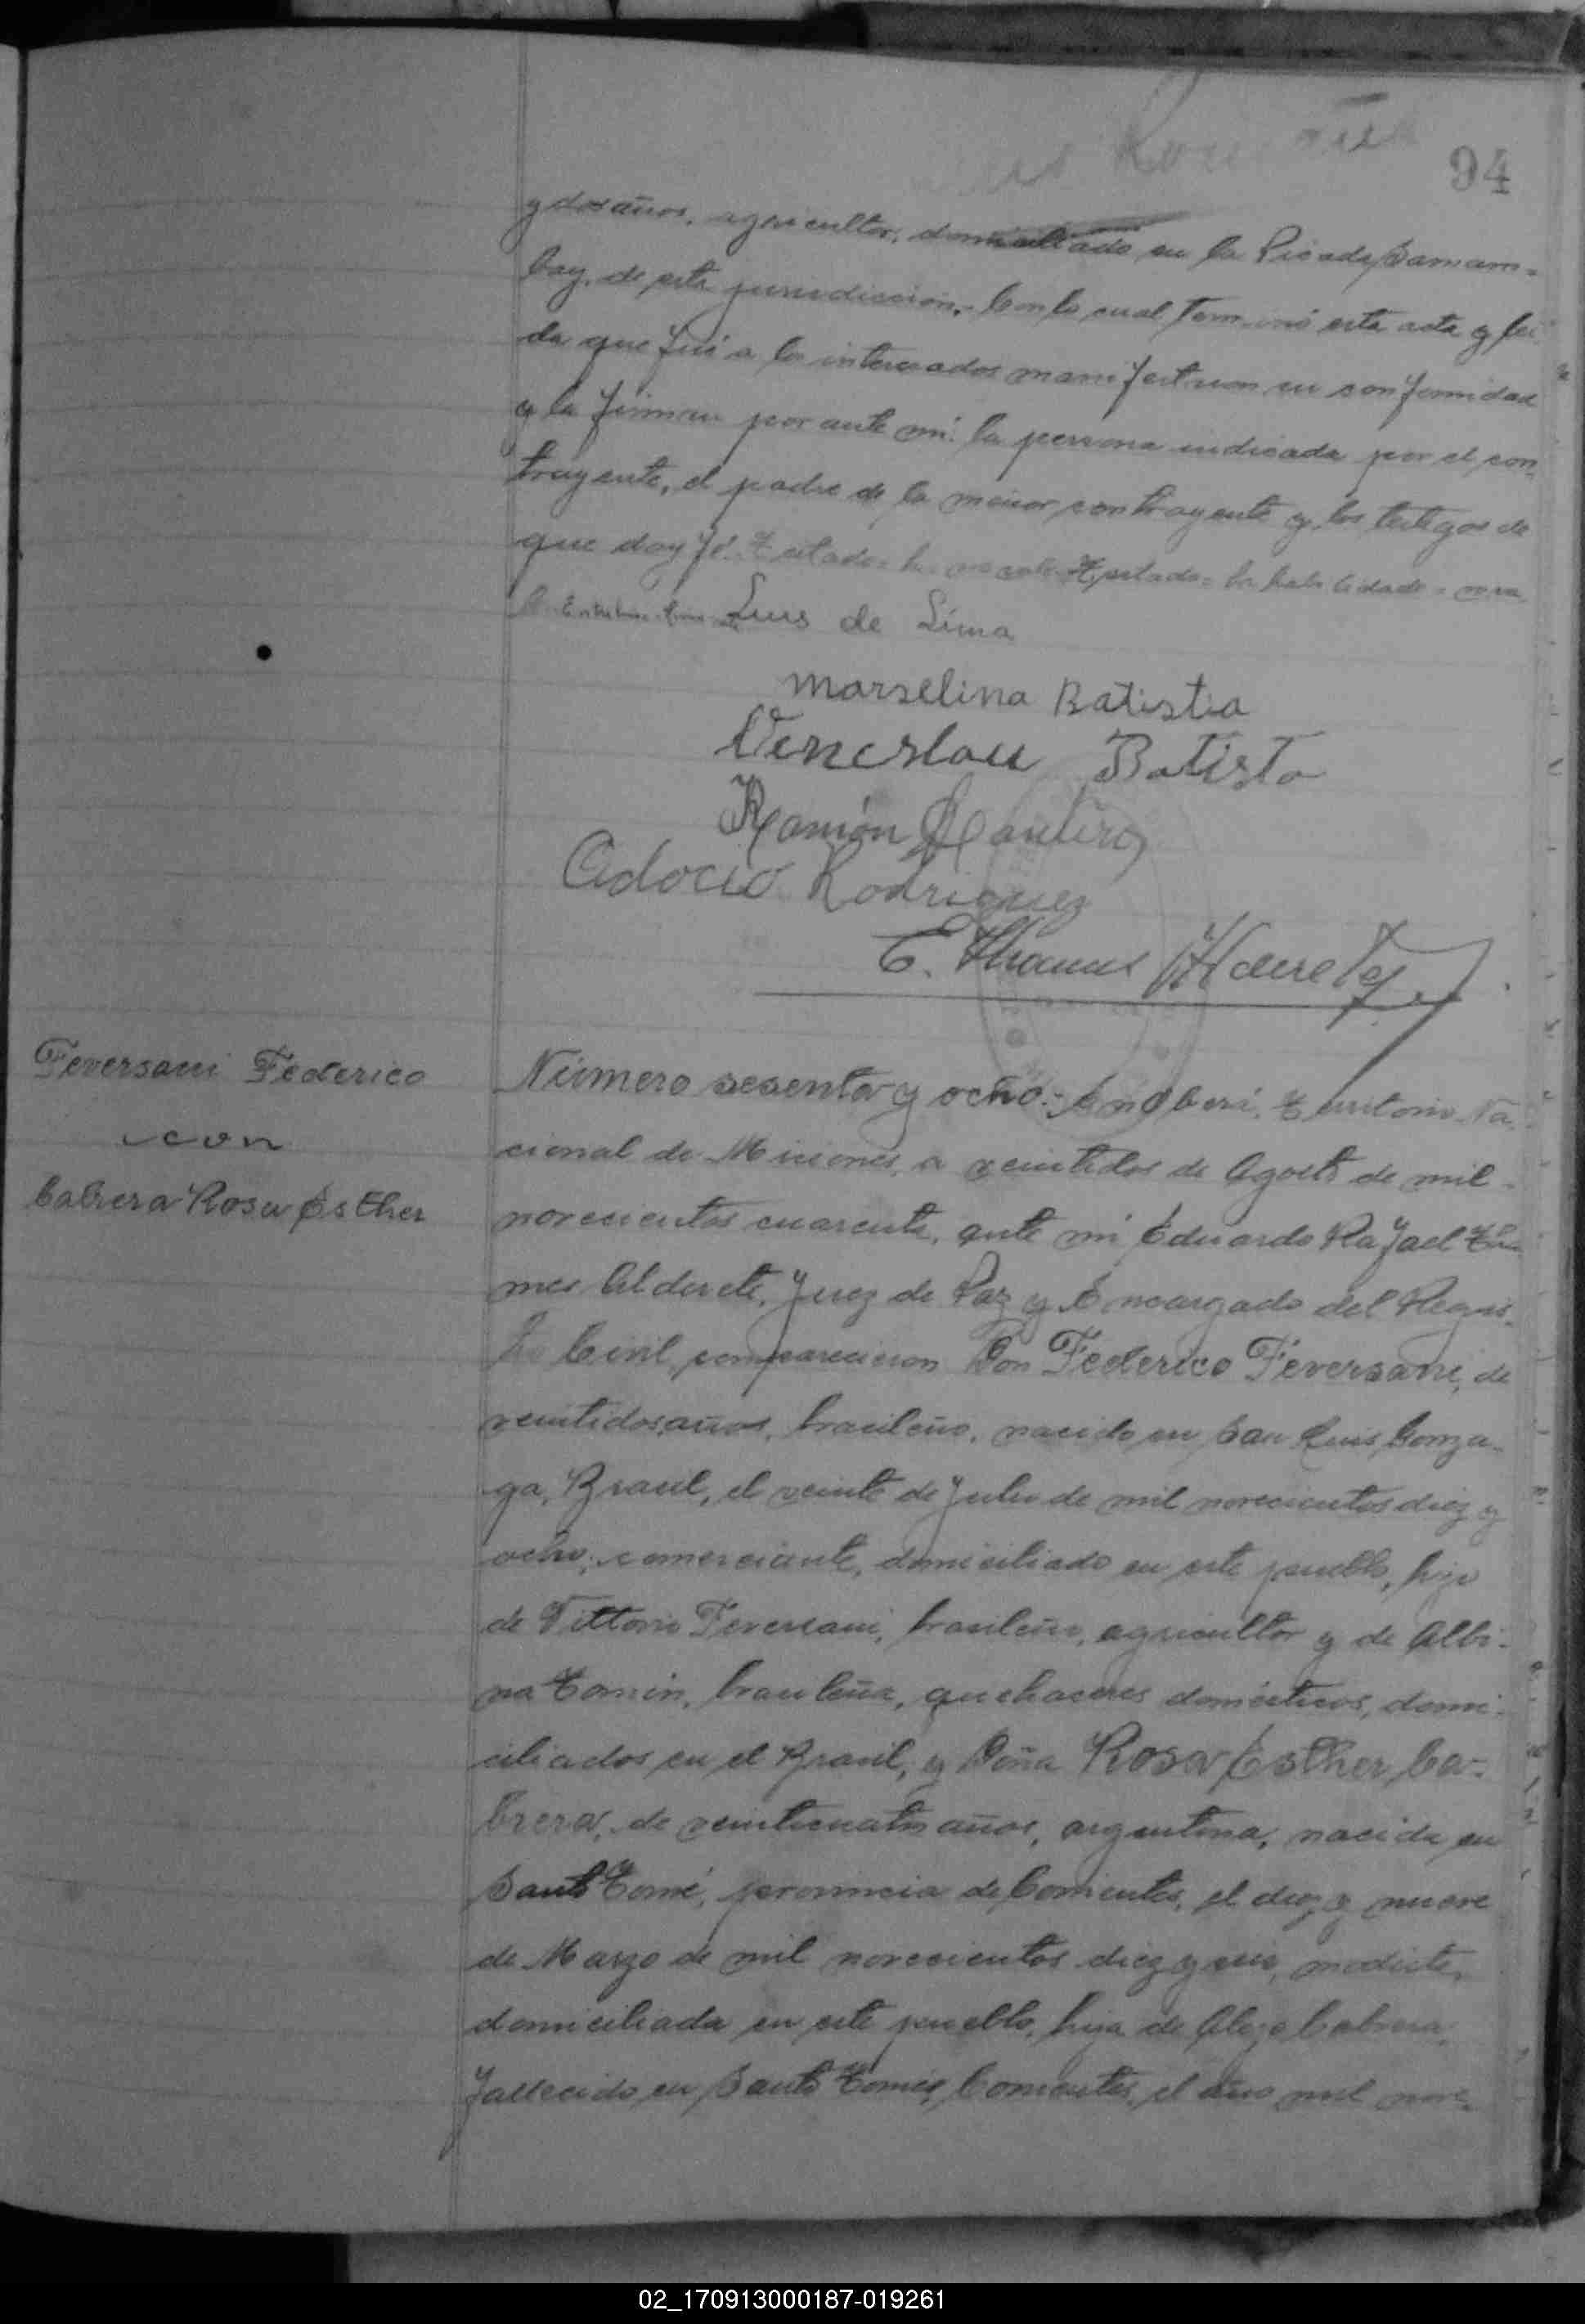 94
y dos años, agricultor, domiciliado en la Picada Samam-
bay, de esta jurisdiccion.- Con lo cual terminó esta acta y lei-
da que fué a los interesados manifestaron su conformidad
y la firman por ante mi: la persona indicada por el con-
trayente, el padre de la menor contrayente y los testigos de
que doy fé.
Luis de Lima
Marselina Batistia
Veneslau Batista
Ramón
Adocio Rodriguez
E. Thames Alderete
Feversani Federico
con
Cabrera Rosa Esther
Número sesenta y ocho.- En Oberá, Territorio Na-
cional de Misiones, a veintidos de Agosto de mil
novecientos cuarenta, ante mi Eduardo Rafael Tha-
mes Alderete, Juez de Paz y Encargado del Regis-
tro Civil, comparecieron Don Federico Feversani, de
veintidos años, brasileño, nacido en San Luis Gonza-
ga, Brasil, el veinte de Julio de mil novecientos diez y
ocho, comerciante, domiciliado en este pueblo, hijo
de Vittorio Feversani, brasileño, agricultor y de Albi-
na Comin, brasileña, quehaceres domésticos, domi-
ciliados en el Brasil, y Doña Rosa Esther Ca-
brera, de veinticuatro años, argentina, nacida en
Santo Tomé, provincia de Corrientes, el diez y nueve
de Marzo de mil novecientos diez y seis, modista,
domiciliada en este pueblo, hija de Alejo Cabrera,
fallecido en Santo Tomé, Corrientes, el año mil nove-
02_170913000187-019261